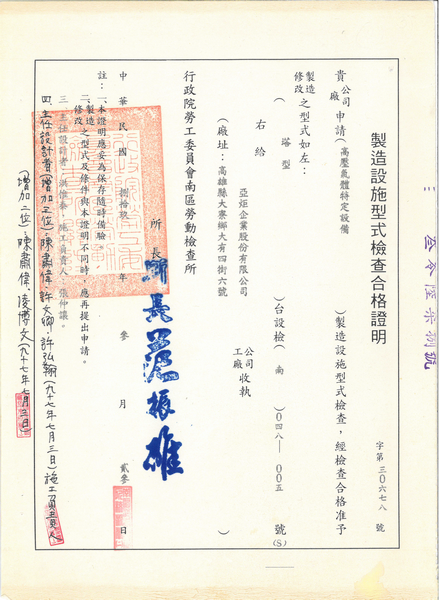 製造設施型式檢查合格證明
字第三0六七八號
貴公司廠申請(高壓氣體特定設備)製造設施型式檢查,經檢查合格准予
製造修改之型式如左:
(塔型)台設檢(南)0四八—00五號(S)
右給
亞炬企業股份有限公司
公司工廠收執
(廠址:高雄縣大寮鄉大有四街六號)
行政院勞工委員會南區勞動檢查所
所長
所長 振雄
中華民國捌拾玖年參月貳參日
註:一、本證明應妥為保存隨時備驗。
二、製造修改之型式及條件與本證明不同時,應再提出申請。
三、主任設計者:洪惟泰,施工負責人:張仲讓。
四、主任設計者(增加二位):陳肅偉、許文卿、許弘翰(九十七年七月三日)施工負責人
(增加二位)陳肅偉、凌博文(九十七年七月三日)